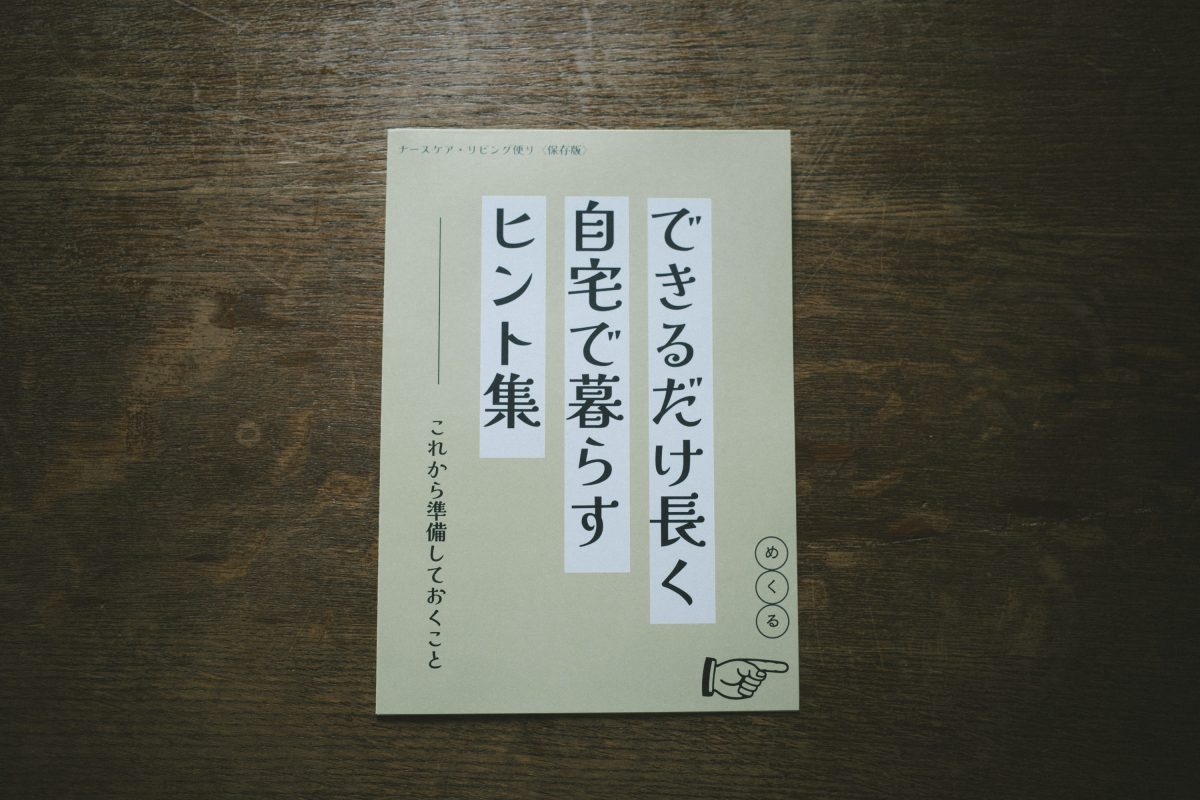 ナースケア・リビング便り〈保存版〉
できるだけ長く
自宅で暮らす
ヒント集
これから準備しておくこと
めくる